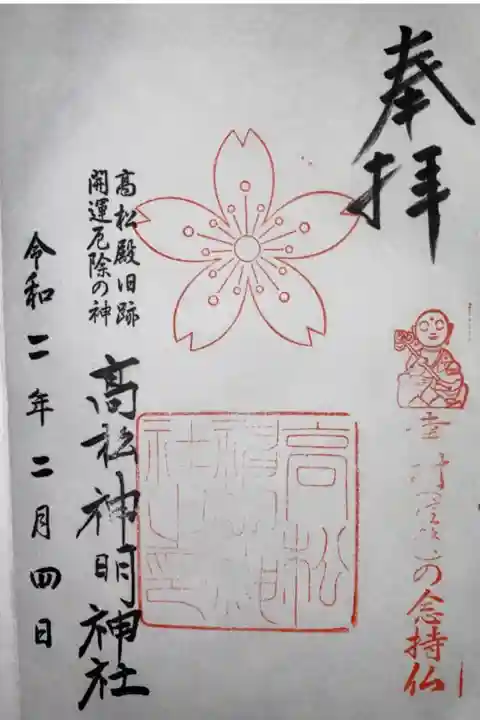 奉拝
の念持仏
高松
神明神
社之印
高松殿旧跡
開運厄除の神
高松神明神社
令和二年二月四日